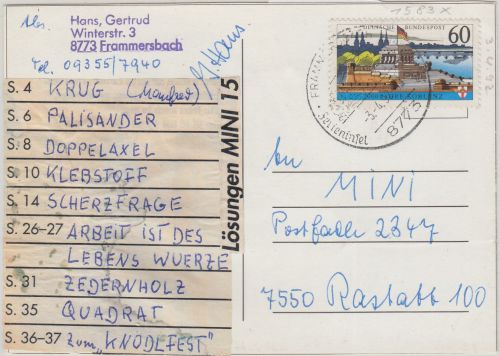 Abs.
Hans, Gertrud
Winterstr. 3
8773 Frammersbach
Tel. 09355/7940
G. Hans
S. 4 KRUG (Manfred)
S. 6 PALISANDER
S. 8 DOPPELAXEL
S. 10 KLEBSTOFF
S. 14 SCHERZFRAGE
S. 26-27 ARBEIT IST DES
LEBENS WUERZE
S. 31 ZEDERNHOLZ
S. 35 QUADRAT
S. 36-37 zum „KNÖDLFEST"
Lösungen MINI 15
1583 X
DEUTSCHE BUNDESPOST
60
2000 JAHRE KOBLENZ
8773
An
MINI
Postfach 2347
7550 Rastatt 100